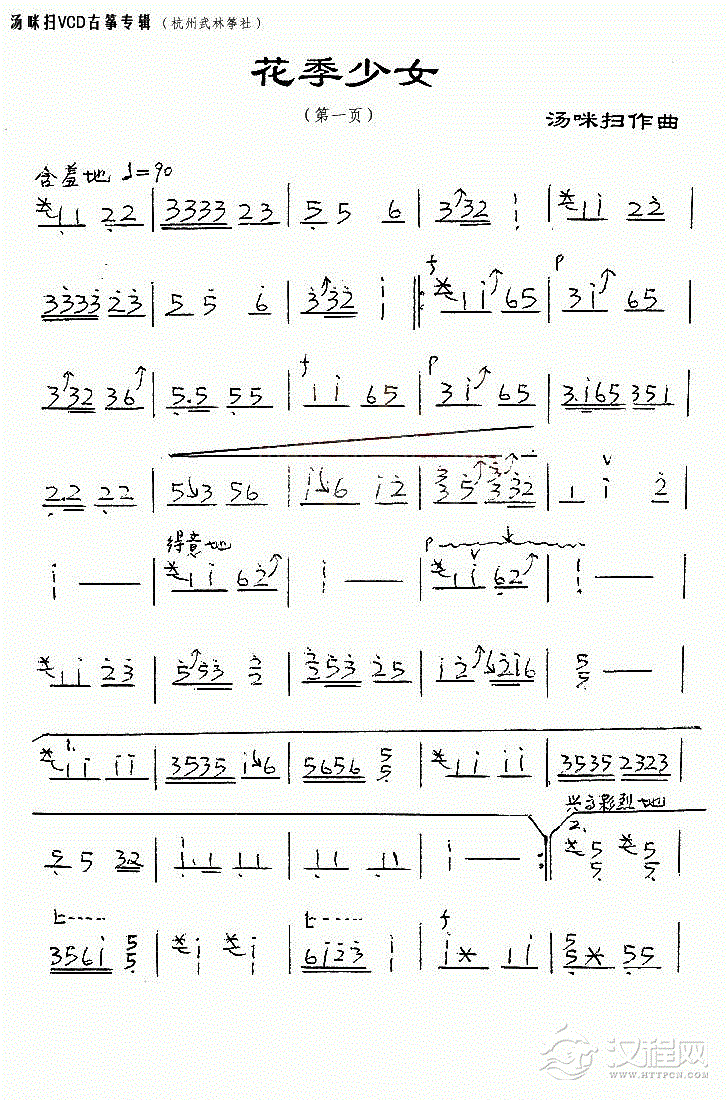 汤咪扫VCD古筝专辑（杭州武林筝社）
花季少女
（第一页）
汤咪扫作曲
含羞地 ♩=90
11 22 | 3333 23 | 5 5 6 | 332 i | 1i 22 |
3333 23 | 5 5 6 | 332 i | f 1i 65 | p 3i 65 |
332 36 | 5.5 55 | f 1i 65 | p 3i 65 | 3.i65 351 |
2.2 22 | 5↘3 56 | i↘6 i2 | 1 i 2 |
得意地
i — | 1i 62 | i — | p 1i 62 | i — |
1i 23 | 553 | i2 | 5 — |
1. 1i ii | 3535 i↘6 | 5656 5 | 1i ii | 3535 2323 |
兴高彩烈地
5 5 3.2 | i.1 11 | 11 1i | i — | 2. 5 5 |
3561 5 | i i | 6i23 i | f i* 1i | 5* 55 |
汉程网
WWW.HTTPCN.COM